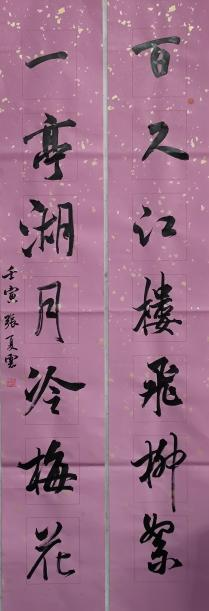 百久江楼飛柳絮
一亭湖月冷梅花
壬寅張夏雲